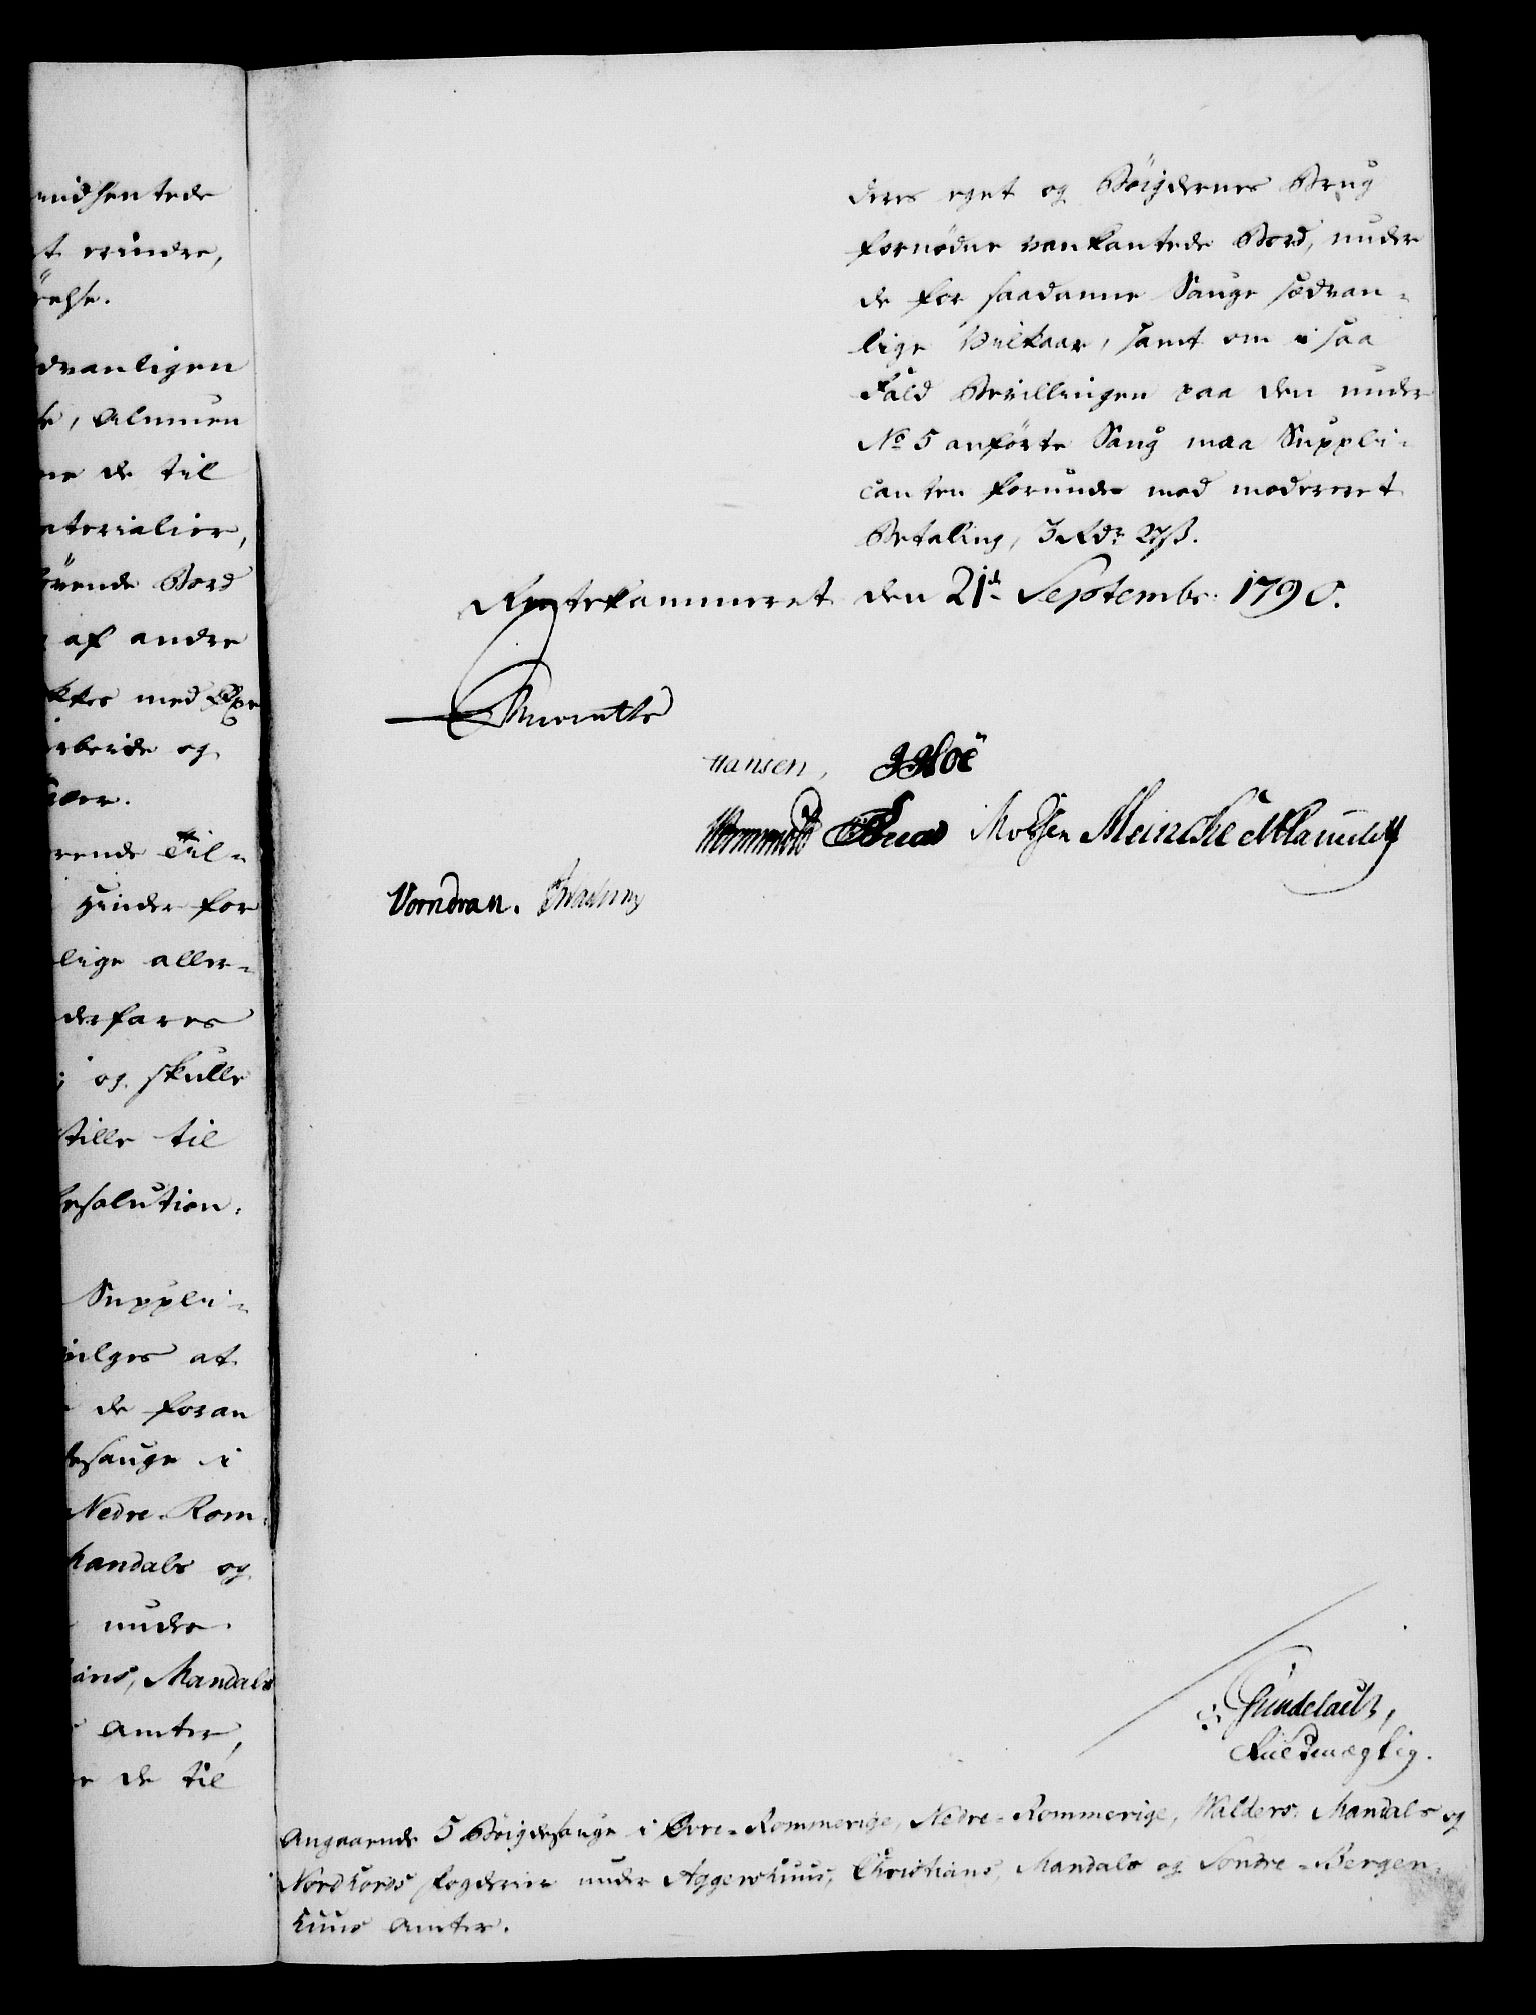 midsentede
t erindre,
relse.
dvanligen
te, Almuen
ne de til
aterialier,
örende Bord
af andre
ktes med Exe
rbeide og
aler.
rende Til-
hinder for
lige aller-
derfares
; og skulle
stille til
Resolution,
Suppli-
vilges at
de foran
desauge i
Nedre-Rom-
Mandals og
under
ians, Mandals
Amter,
e de til
deres eget og Böigdernes Brug
fornødne vankantede Bord, under
de for saadanne Sauge sædvan-
lige Vilkaar, samt om i saa
Fald Bevillingen paa den under
No 5 anførte Saug maa Suppli-
canten forundes mod modereret
Betaling, 3 Rdr 27 ß.
Rentekammeret den 21de Septembr: 1790.
Hansen,
Wormskiold Meincke
Vorndran.
Gundelach,
Fuldmægtig.
Angaaende 5 Böigdesauge i Övre-Rommerige, Nedre-Rommerige, Walders, Mandals og
Nordhords Fogderier under Aggershuus, Christians, Mandals og Söndre-Bergen-
huus Amter.